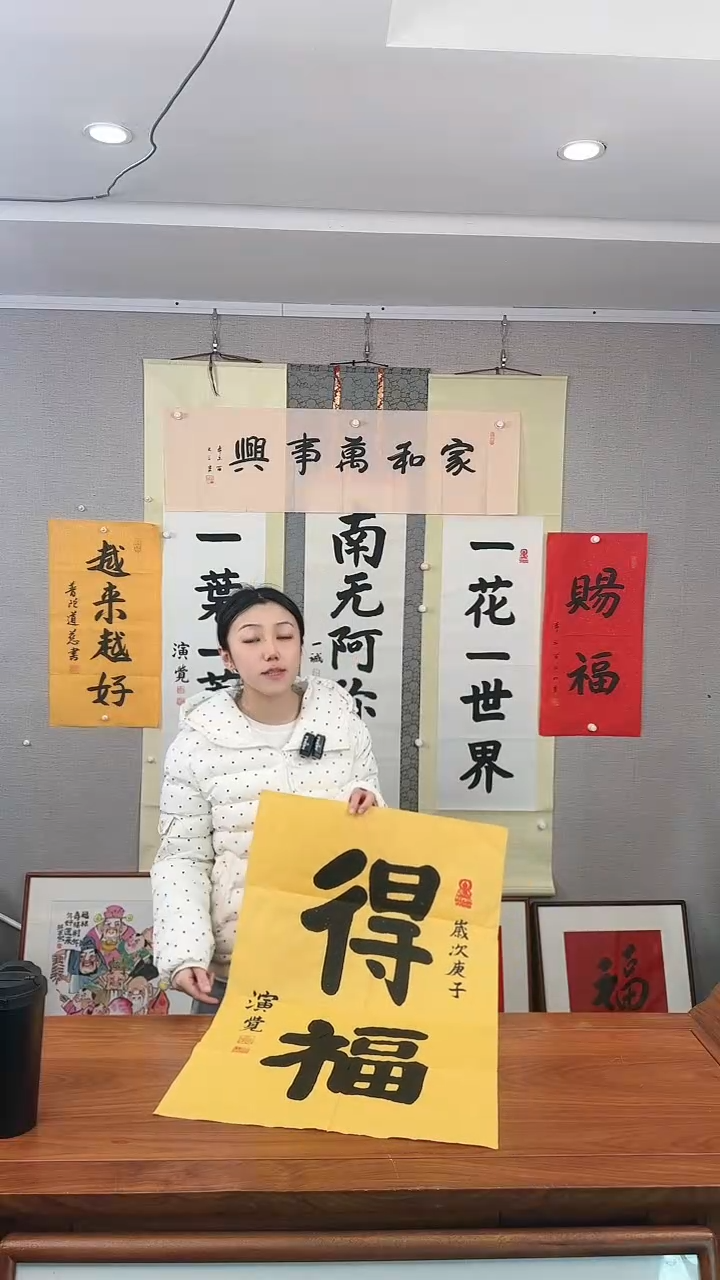 家和萬事興
一花一世界
南无阿弥
一葉一菩
演覺
一诚
賜福
越来越好
普陀道慈書
得福
歲次庚子
演覺
福